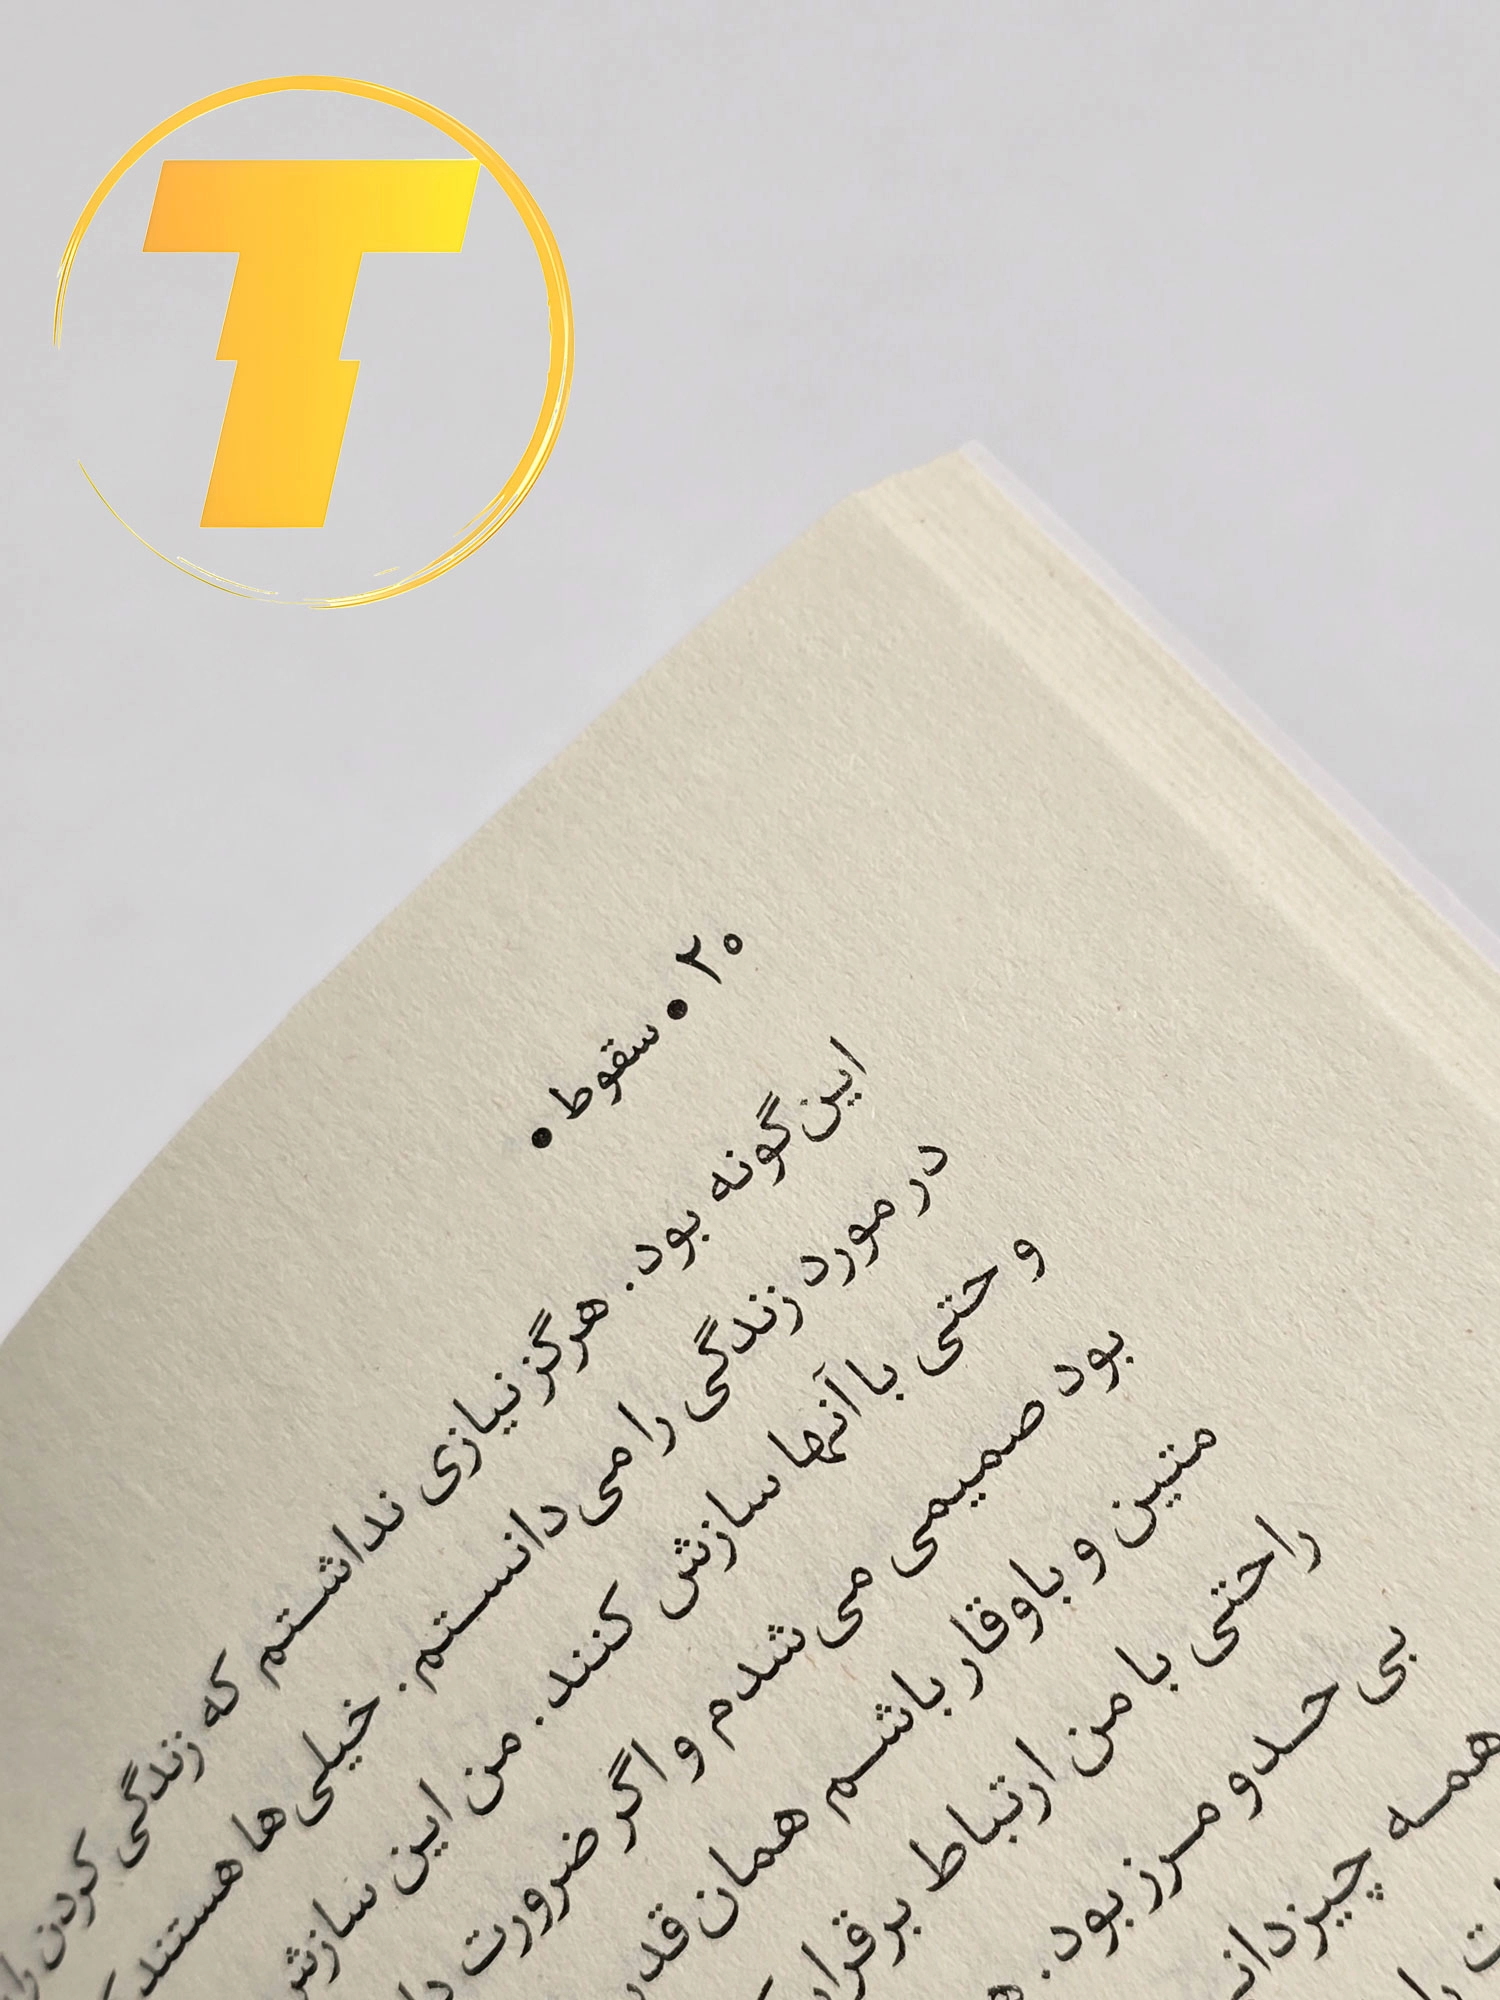 T
۲۰ • سقوط •
این گونه بود. هرگز نیازی نداشتم که زندگی کردن را
در مورد زندگی را می دانستم. خیلی ها هستند
و حتی با آنها سازش کنند. من این سازش
بود صمیمی می شدم و اگر ضرورت
متین و باوقار باشم همان قدر
راحتی با من ارتباط برقرار
بی حد و مرز بود.
همه چیز